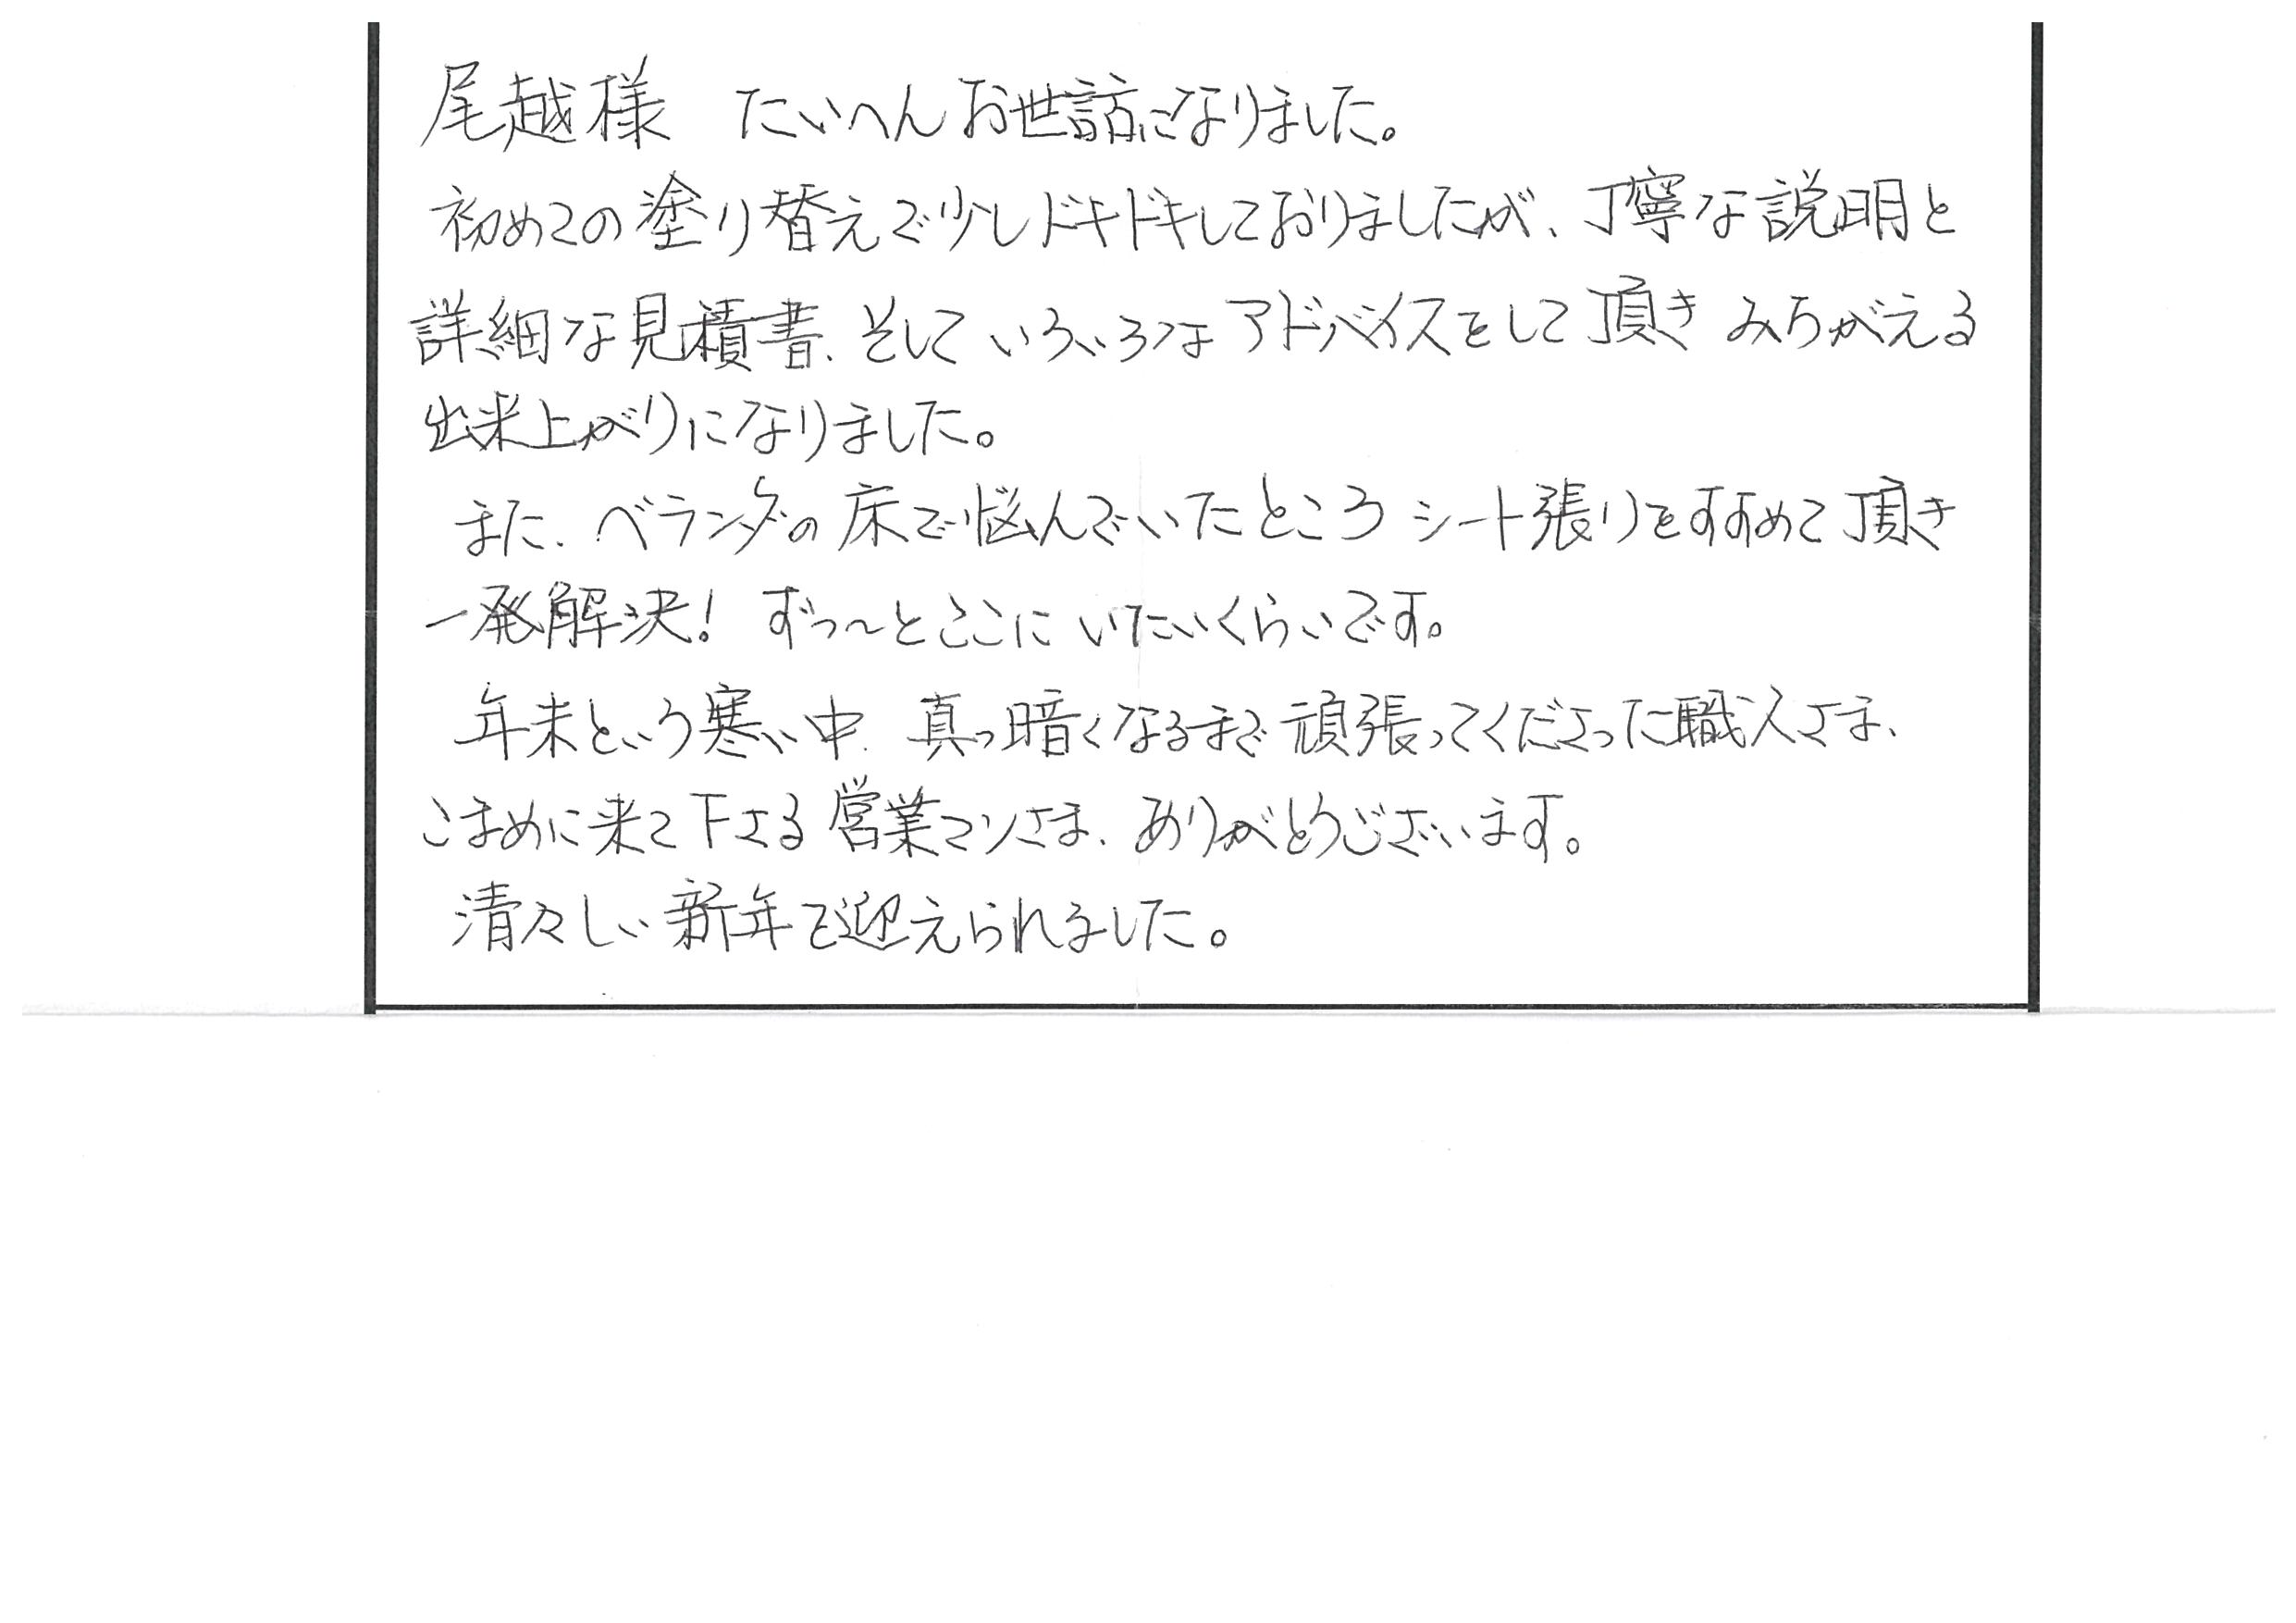 尾越様　たいへんお世話になりました。
初めての塗り替えで少しドキドキしておりましたが、丁寧な説明と
詳細な見積書、そしていろいろなアドバイスをして頂き みちがえる
出来上がりになりました。
また、ベランダの床で悩んでいたところ シート張りをすすめて頂き
一発解決！ ずっ〜とここに いたいくらいです。
年末という寒い中、真っ暗くなるまで頑張ってくださった職人さま、
こまめに来て下さる営業マンさま、ありがとうございます。
清々しい新年を迎えられました。